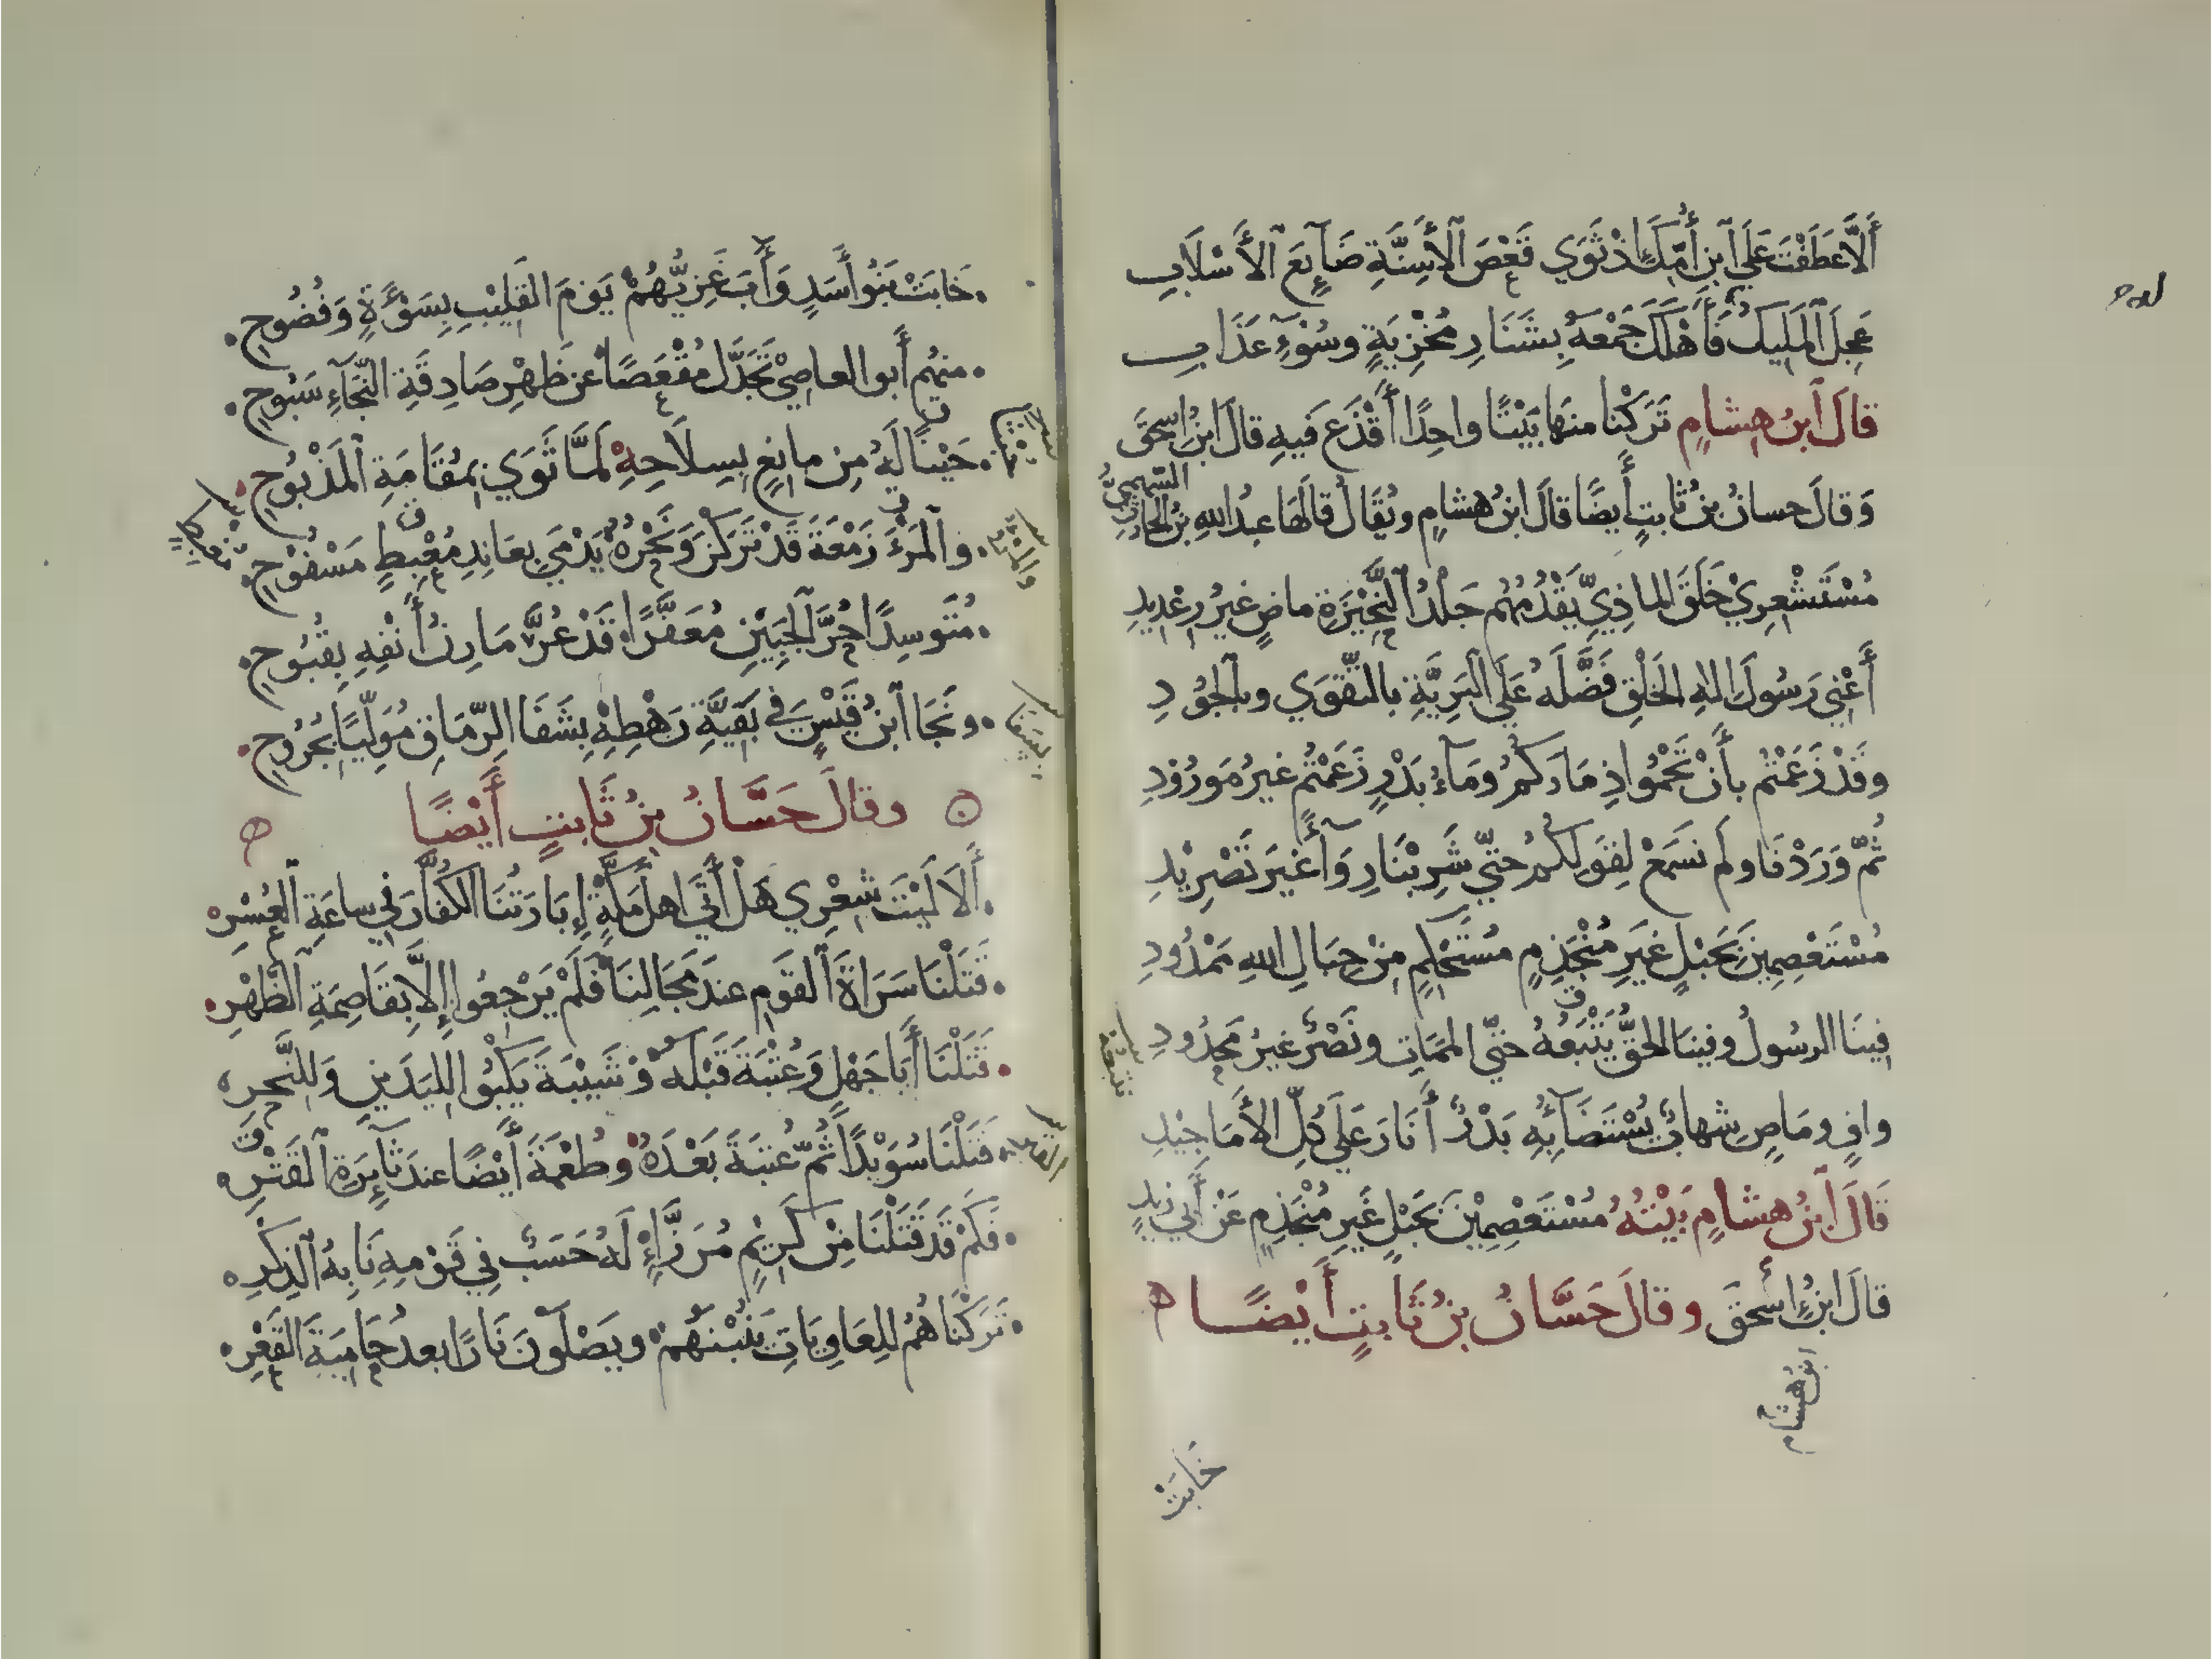 أَلَّا عَطَفْتَ عَلَي ٱبنِ أُمِّكَ إِذْ ثَوَي قَعْصَ ٱلأَسِنَّةِ ضَآئِعَ ٱلأَسْلَابِ
عَجِلَ ٱلمَلِيكُ فَأَهْلَكَ جَمْعَهُ بِشَنَارِ مُخْزِيَةٍ وسُوْءِ عَذَابِ
قالَ ٱبنُ هِشامٍ تَرَكْنا منها بَيْتًا واحِدًا أَقْذَعَ فيهِ قالَ ابنُ إسحقَ
وَقالَ حسانُ بنُ ثابتٍ أيضًا قالَ ابنُ هشامٍ ويُقَال قالَهَا عبدُ اللهِ بنُ الحارثِ السَّهميُّ
مُسْتَشْعِرِيْ حَلَقَ الماذِيِّ يَقْدُمُهُم جَلْدُ ٱلنَّحِيْزَةِ ماضٍ غيرُ رِعْدِيدِ
أَعْنِي رَسُولَ الٰهِ الخَلْقِ فَضَّلَهُ عَلَي البَرِيَّةِ بالتَّقْوَي وبٱلجُوْدِ
وقَدْ زَعَمْتُم بأَنْ تَحْمُوا ذِمَارَكُمُ ومَآءُ بَدْرٍ زَعَمْتُم غيرُ مَورُوْدِ
ثُمَّ وَرَدْنَا ولَم نَسمَعْ لِقَولِكُمُ حتّي شَرِبْنَا رِوَآءً غيرَ تَصْرِيْدِ
مُسْتَعْصِمِينَ بِحَبْلٍ غَيرِ مُنْجَذِمٍ مُسْتَحْكِمٍ مِنْ حِبَالِ اللهِ مَمْدُودِ
فِينَا الرسُولُ وفِينَا الحَقُّ نَتْبَعُهُ حتّي المَمَاتِ ونَصْرٌ غيرُ مَحدُودِ
وافٍ ومَاضٍ شهابٌ يُسْتَضَآءُ بِهِ بَدْرٌ أَنَارَ عَلَي كُلِّ الأَمَاجِيْدِ
قَالَ ٱبنُ هِشامٍ بَيْتُهُ مُسْتَعْصِمِيْنَ بِحَبْلٍ غَيرِ مُنْجَذِمٍ عَنْ أَبي زيدٍ
قالَ ابنُ إسحقَ وقالَ حَسَّانُ بنُ ثَابتٍ أَيْضًا
ابنُ هشام
خَابَتْ
خَابَتْ بَنُو أَسَدٍ وَأَبَ غَزِيُّهُمْ يَومَ القَلِيْبِ بِسَوْءَةٍ وَفُضُوحِ
منهُم أَبو العاصِيْ تَجَدَّلَ مُقْعَصًا عَن ظَهْرِ صَادِقَةِ النَّجَآءِ سَبُوحِ
حَيْنًا لَهُ مِن مانِعٍ بِسِلَاحِهِ لَمَّا ثَوَي بمُقَامَةِ ٱلمَذْبُوحِ
والمَرْءُ زَمْعَةُ قَدْ تَرَكْنَ وَنَحْرُهُ يَدْمَي بِعَانِدِ مُعْبِطٍ مَسْفُوْحِ
والمرءَ
مُتَوسِدًا حُرَّ ٱلجَبِيْنِ مُعَفَّرًا قَدْ عُرَّ مَارِنُ أَنْفِهِ بِقُبُوحِ
ونَجَا ٱبنُ قَيْسٍ في بَقيَّةِ رَهْطِهِ بِشَفَا الرِّمَاقِ مُوَلِّيًا بجُرُوحِ
وقالَ حَسَّانُ بنُ ثَابتٍ أَيْضًا
أَلَا لَيْتَ شِعْرِي هَلْ أَتَي اهلَ مَكَّةٍ إِبَارَتُنَا الكُفَّارَ في ساعَةِ ٱلعُسْرِ
قَتَلْنَا سَرَاةَ ٱلقَومِ عندَ مَجَالِنَا فَلَمْ يَرْجِعُوا إِلَّا بِقَاصِمَةِ ٱلظَّهْرِ
قَتَلْنَا أَبَا جَهْلٍ وَعُتْبَةَ قَبْلَهُ وْشَيْبَةَ يَكْبُو لِليَدَينِ وَلِلنَّحرِ
قَتَلْنَا سُوَيْدًا ثُمَّ عُتبَةَ بَعْدَهُ وطُعْمَةَ أَيْضًا عندَ ثَآئِرَةِ ٱلقَتْرِ
فَكَمْ قَد قَتَلْنَا مِنْ كَرِيْمٍ مُرَزَّإٍ لَهُ حَسَبٌ فِي قَوْمِهِ نَابِهُ ٱلذِكْرِ
تَرَكْنَاهُمُ لِلعَاوِيَاتِ يَنُبْنَهُمْ ويَصْلَوْنَ نَارًا بعدُ حَامِيَةَ القَعْرِ